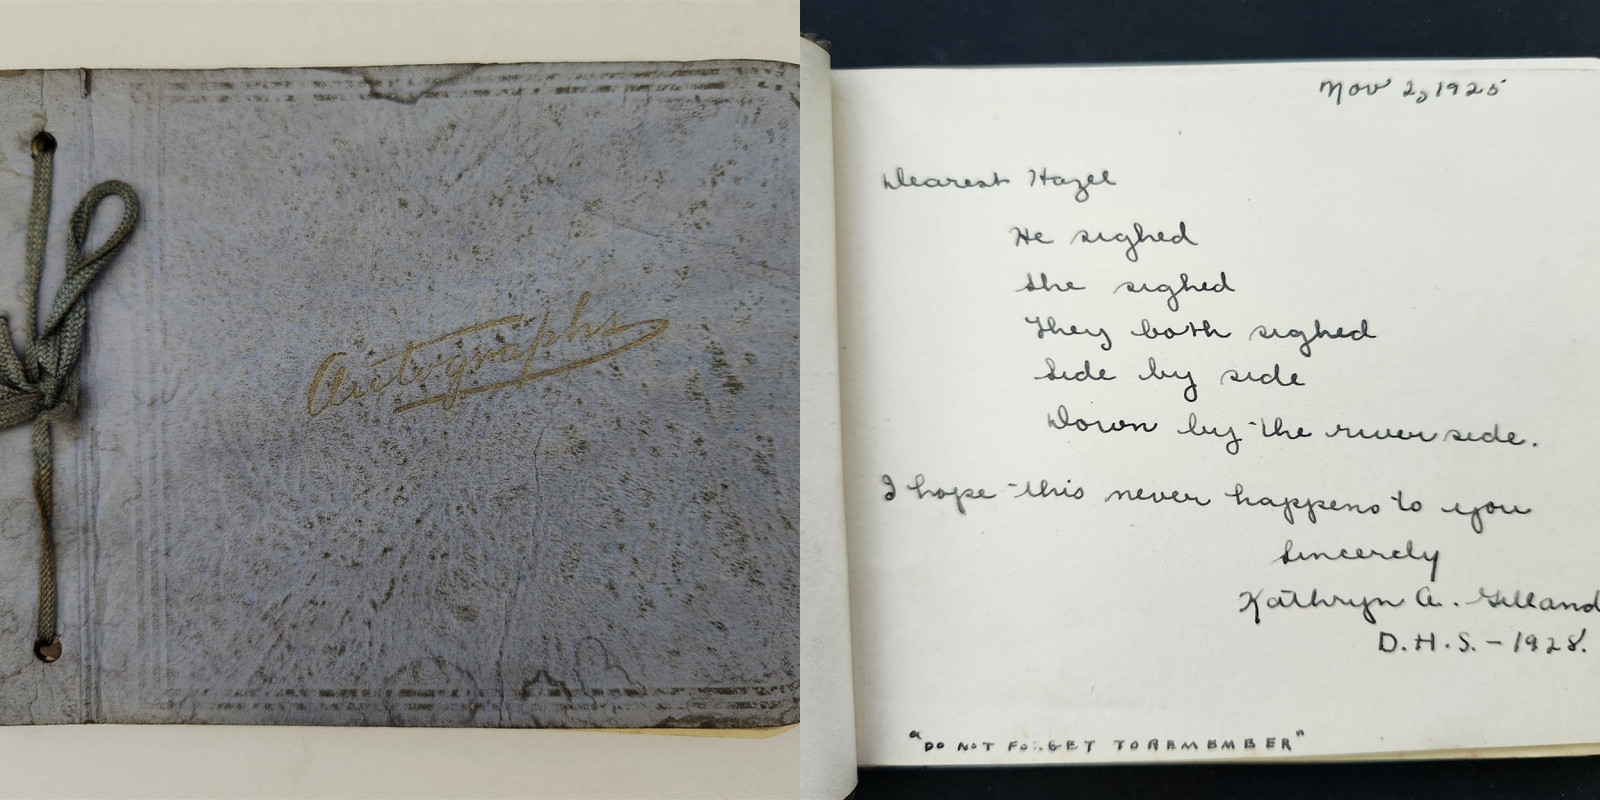 Autographs
Nov 2, 1925
Dearest Hazel
He sighed
She sighed
They both sighed
Side by side
Down by the river side.
I hope this never happens to you
Sincerely
Kathryn A. Gilland
D.H.S. - 1928.
"DO NOT FORGET TO REMEMBER"